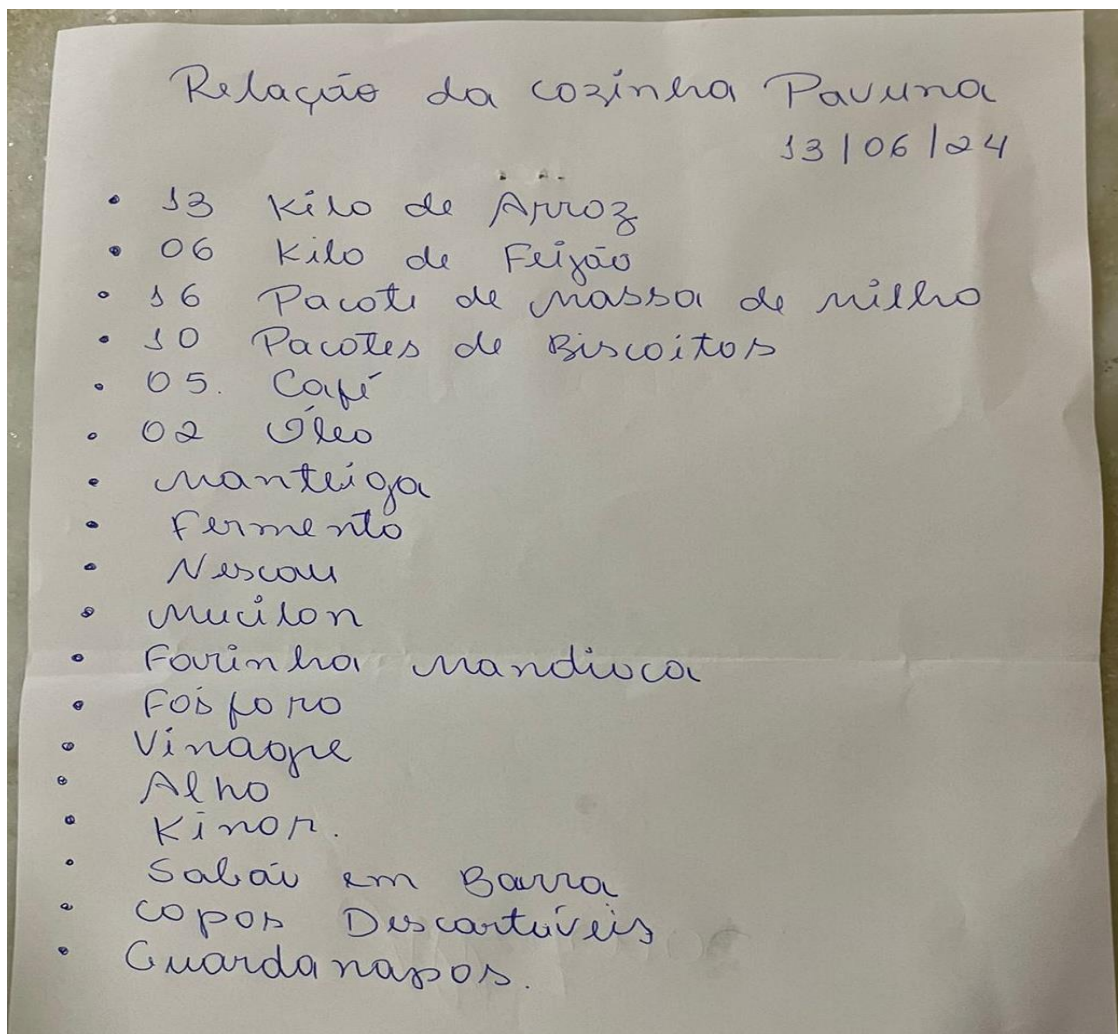 Relação da cozinha Pavuna
13/06/24
• 13 Kilo de Arroz
• 06 Kilo de Feijão
• 16 Pacote de massa de milho
• 10 Pacotes de Biscoitos
• 05. Café
• 02 Óleo
• manteiga
• Fermento
• Nescau
• Mucilon
• Farinha mandioca
• Fósforo
• Vinagre
• Alho
• Kinor.
• Sabão em Barra
• copos Descartáveis
• Guardanapos.